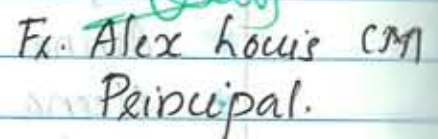 Fr. Alex Louis CMI
Principal.